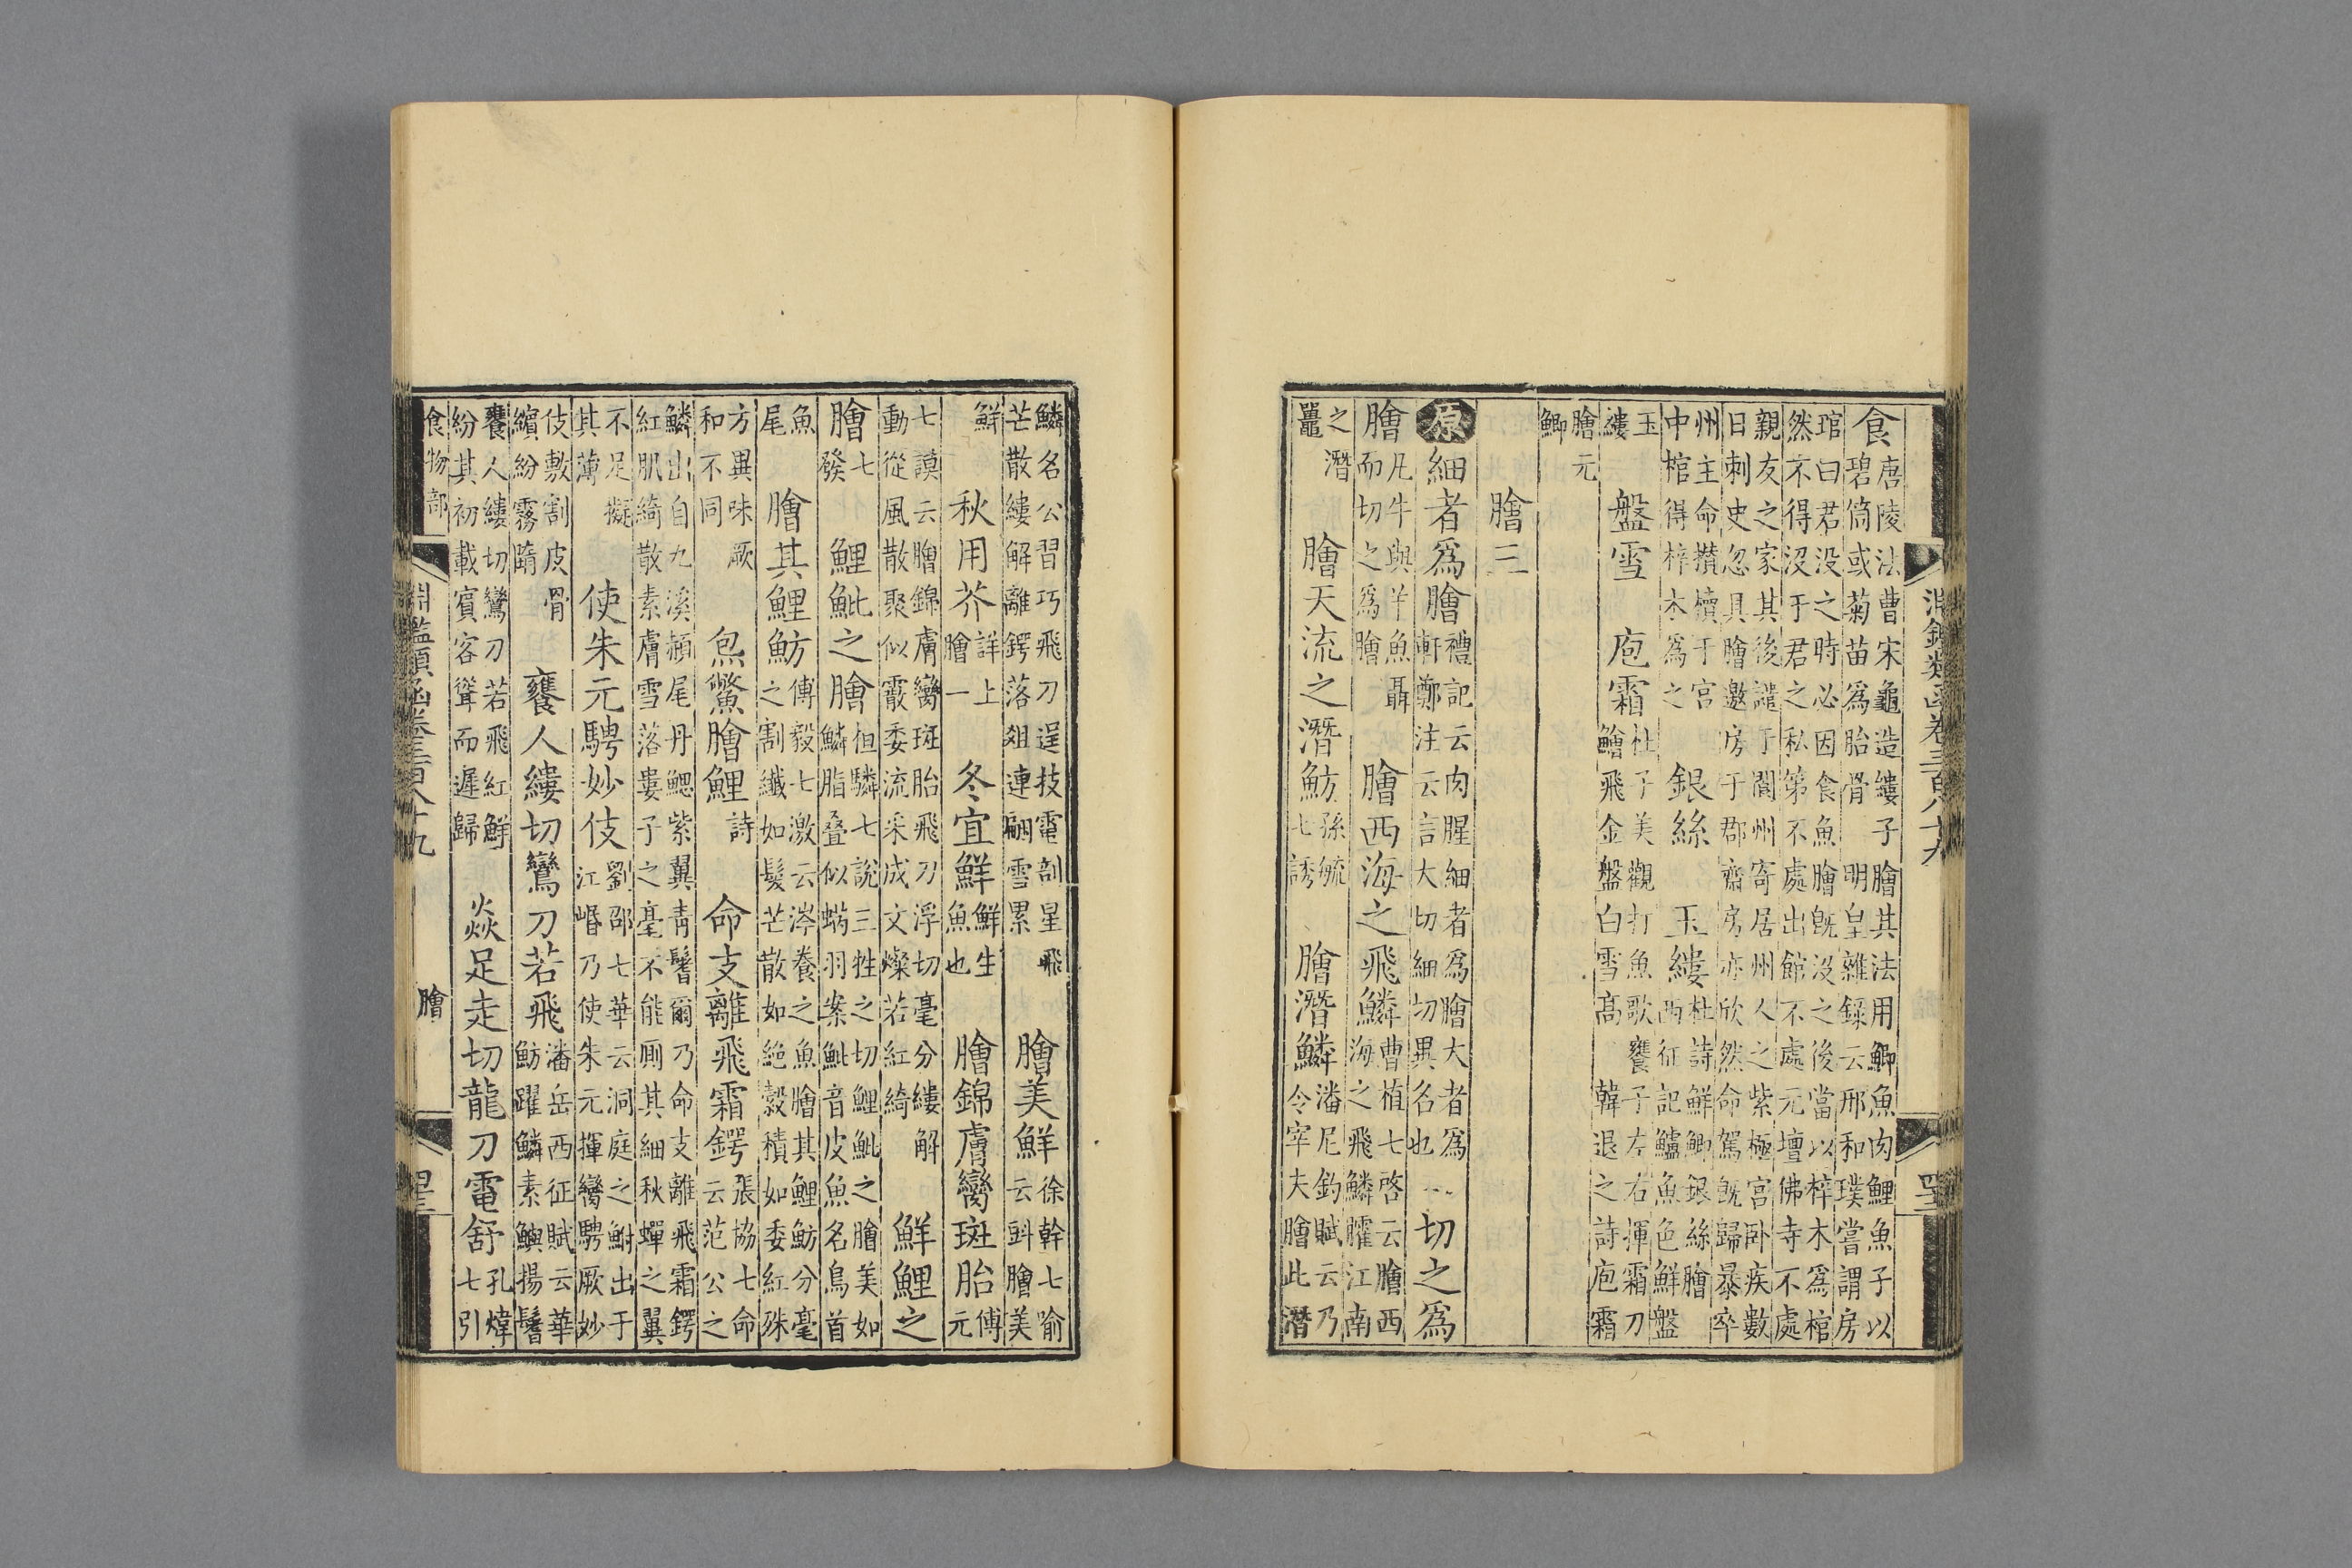 淵鑑類函卷三百八十九
食 唐陵法曹宋龜造縷子膾其法用鯽魚肉鯉魚子以
碧筒或菊苗爲胎骨 明皇雜録云邢和璞嘗謂房
琯曰君没之時必因食魚膾既没之後當以梓木爲棺
然不得没于君之私第不處出館不處元壇佛寺不處
親友之家其後譴于閬州寄居州人之紫極宮卧疾數
日刺史忽具膾邀房于郡齋房亦欣然命駕既歸暴卒
州主命攢櫝于宮
中棺得梓木爲之
銀絲 玉縷 杜詩鮮鯽銀絲膾
西征記鱸魚色鮮盤
玉
縷
盤雪 庖霜 杜子美觀打魚歌饔子左右揮霜刀
鱠飛金盤白雪高 韓退之詩庖霜
膾元
鯽
膾三
原細者爲膾 禮記云肉腥細者爲膾大者爲
軒鄭注云言大切細切異名也
切之爲
膾 凡牛與羊魚聶
而切之爲膾
膾西海之飛鱗 曹植七啓云膾西
海之飛鱗臛江南
之潛
鼉
膾天流之潛魴 孫毓
七誘
膾潛鱗 潘尼釣賦云乃
令宰夫膾此潛
鱗名公習巧飛刀逞技電剖星飛
芒散縷解離鍔落俎連翩雪累
膾美鮮 徐幹七喻
云㪷膾美
鮮
秋用芥 詳上
膾一
冬宜鮮 鮮生
魚也
膾錦膚臠斑胎 傅
元
七謨云膾錦膚臠斑胎飛刀浮切毫分縷解
動從風散聚似霰委流采成文燦若紅綺
鮮鯉之
膾 七
發
鯉魮之膾 但驎七說三牲之切鯉魮之膾美如
鱗脂叠似蚋羽案魮音皮魚名鳥首
魚
尾
膾其鯉魴 傅毅七激云涔養之魚膾其鯉魴分毫
之割纖如髮芒散如絶縠積如委紅殊
方異味厥
和不同
炰鱉膾鯉 詩
命支離飛霜鍔 張協七命
云范公之
鱗出自九溪頳尾丹鰓紫翼青鬐爾乃命支離飛霜鍔
紅肌綺散素膚雪落婁子之毫不能厠其細秋蟬之翼
不足擬
其薄
使朱元騁妙伎 劉邵七華云洞庭之鮒出于
江㟭乃使朱元揮臠騁厥妙
伎敷割皮骨
繽紛霧隋
饔人縷切鸞刀若飛 潘岳西征賦云華
魴躍鱗素鱮揚鬐
饔人縷切鸞刀若飛紅鮮
紛其初載賓客聳而遲歸
焱足走切龍刀電舒 孔煒
七引
食物部
淵鑑類函卷三百八十九
膾